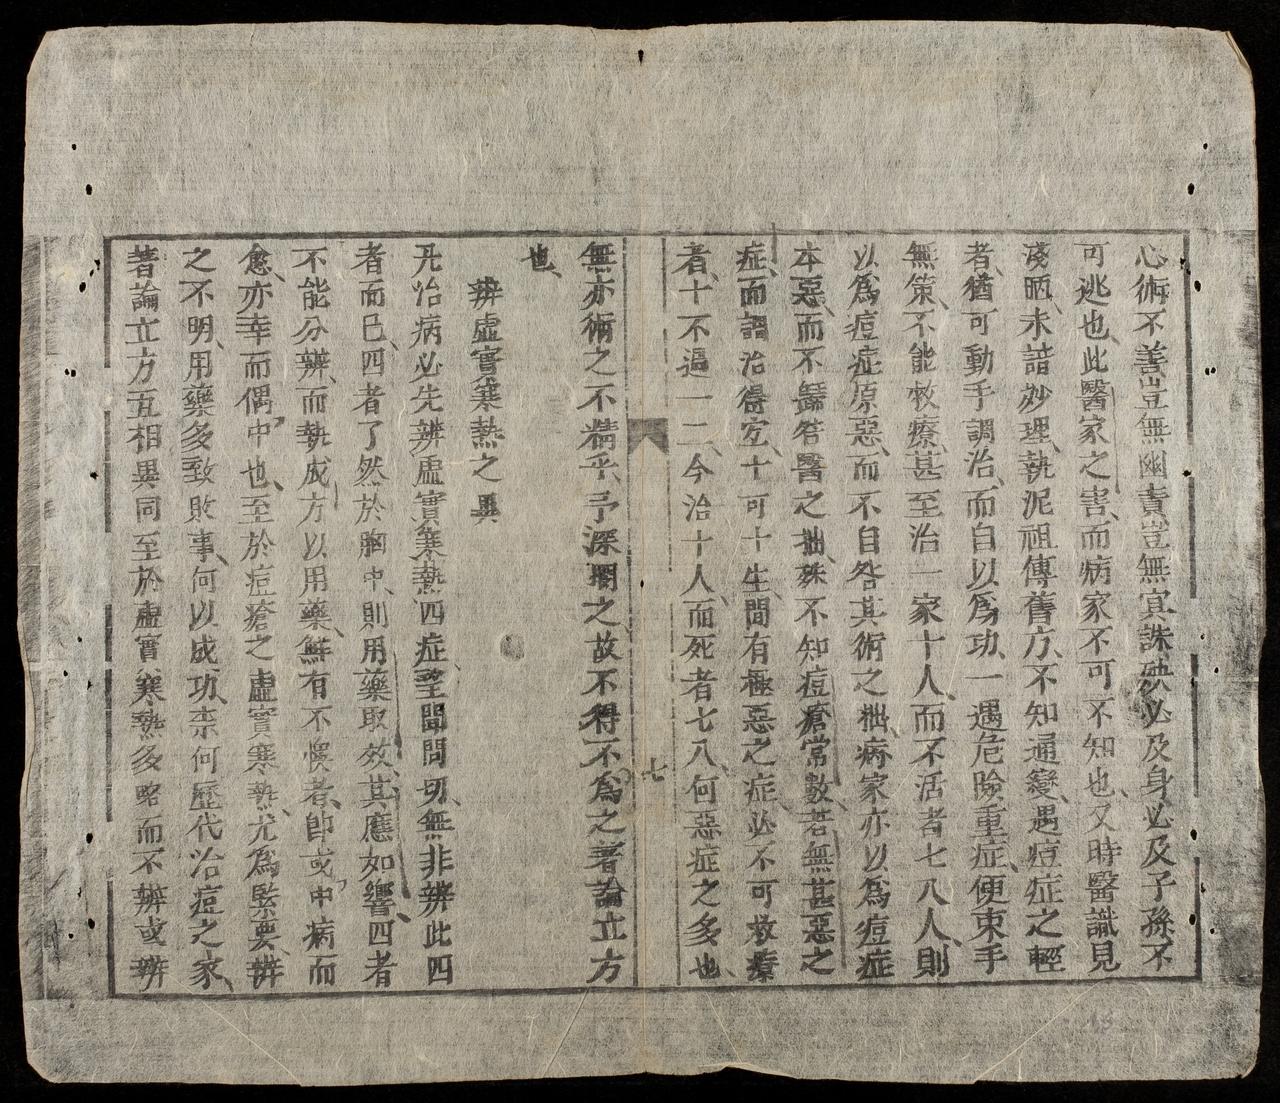 心術不善豈無幽責豈無冥誅殃必及身必及子孫不
可逃也此醫家之害而病家不可不知也又時醫識見
淺晒未諳妙理執泥祖傳舊方不知通變遇痘症之輕
者猶可動手調治而自以爲功一遇危險重症便束手
無策不能救療甚至治一家十人而不活者七八人則
以爲痘症原惡而不自咎其術之拙病家亦以爲痘症
本惡而不歸咎醫之拙殊不知痘瘡常數若無甚惡之
症而調治得宐十可十生間有極惡之症必不可救療
者十不過一二今治十人而死者七八何惡症之多也
七
無亦術之不精乎予深憫之故不得不爲之著論立方
也
辨虛實寒熱之異
凡治病必先辨虛實寒熱四症望聞問切無非辨此四
者而已四者了然於胸中則用藥取效其應如響四者
不能分辨而執成方以用藥鮮有不悞者卽或中病而
愈亦幸而偶中也至於痘瘡之虛實寒熱尤爲緊要辨
之不明用藥多致敗事何以成功柰何歷代治痘之家
著論立方互相異同至於虛實寒熱多略而不辨或辨